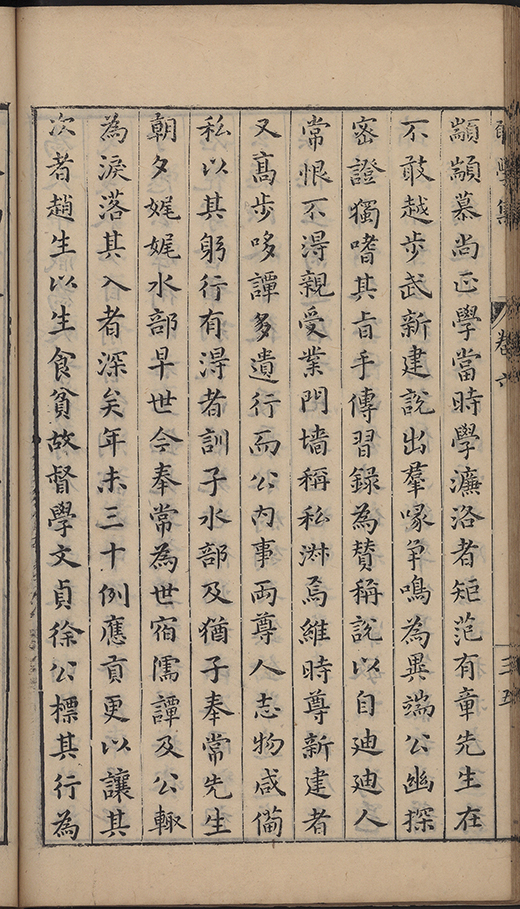 學集 卷六 三五
顓顓慕尚正學當時學濂洛者矩范有章先生在
不敢越步武新建說出羣喙爭鳴為異端公幽探
密證獨嗜其旨手傳習録為賛稱說以自迪迪人
常恨不淂親受業門墻稱私淋焉維時尊新建者
又髙步哆譚多遺行而公内事兩尊人志物咸備
私以其躬行有淂者訓子水部及猶子奉常先生
朝夕娓娓水部早世今奉常為世宿儒譚及公輙
為淚落其入者深矣年未三十例應貢更以讓其
次者趙生以生食貧故督學文貞徐公標其行為